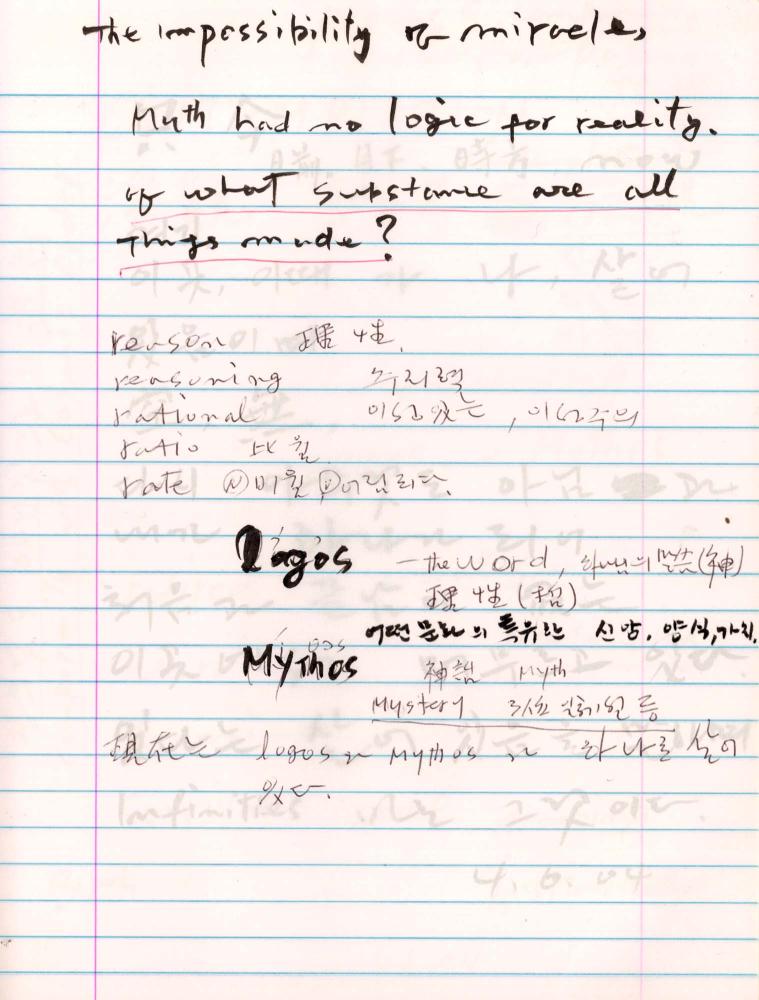 The impossibility of miracles
Myth had no logic for reality.
of what substance are all
Things made?
reason 理性,
reasoning 추리력
rational 이성있는, 이성주의
ratio 比率
rate ⓝ비율 ⓥ어림치다.
Logos —the word, 하나님의 말씀(神)
理性 (哲)
어떤 문화의 특유한 신앙, 양식, 가치,
Mythos
神話 Myth
Mystery 3位 일체설 등
現在는 logos과 Mythos가 하나로 살어
있다.